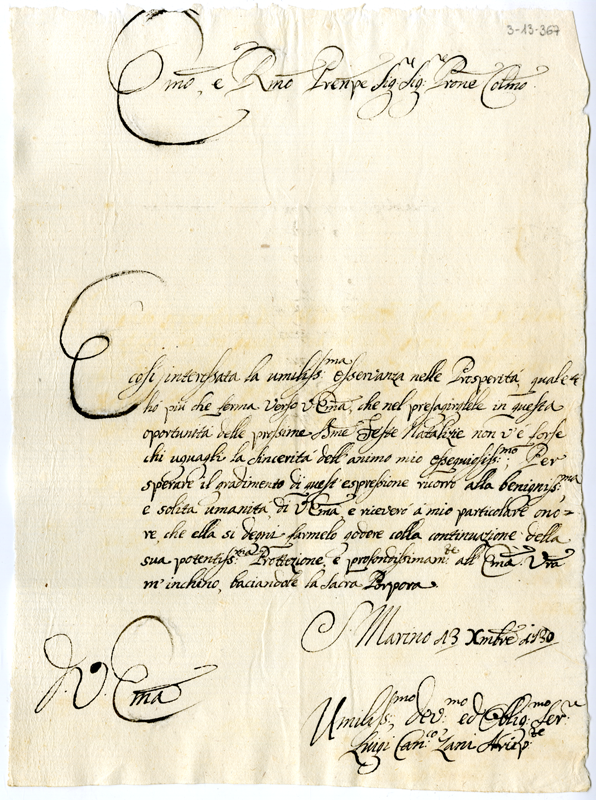 3-13-367
Emo, e Rmo Prenpe Sig.r Sig.r Prone Colmo
E
cosi interessata la umiliss.ma osservanza nelle Prosperità, quale
hò più che ferma verso V. Ema, che nel presagirglele in questa
oportunità delle prossime Sme Feste Natalizie non v'è forse
chi uguagli la sincerità dell'animo mio ossequiosiss.mo, Per
sperare il gradimento di quest'espressione ricorro alla benigniss.ma
e solita umanità di V. Ema, e riceverò a mio particolare ono=
re, che ella si degni farmelo godere colla continuazione della
sua potentiss.ma Protezione, e profondissimam.te all' Ema Vra
m'inchino, baciandole la Sacra Porpora
S. Marino 13 Xmbre 1730
D. V. Ema
Umiliss.mo Dev.mo ed Oblig.mo Ser.e
Luigi Can.co Zani